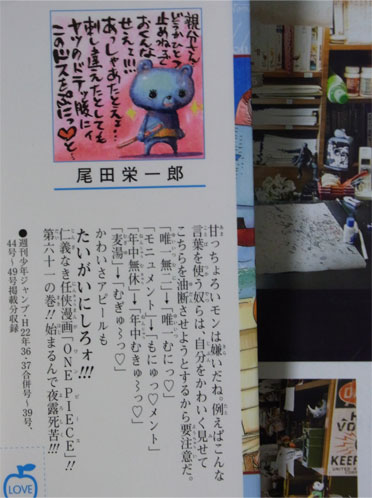 親分さん
どうかひとつ
止めねェで
おくんな
せェ!!!
あっしゃあたとえ…
刺し違えたとしても
ヤツのドテッ腹にィ
このドスをぷにっ♡と…
尾田栄一郎
甘っちょろいモンは嫌いだね。例えばこんな
言葉を使う奴らは、自分をかわいく見せて
こちらを油断させようとするから要注意だ。
「唯一無二」→「唯一むにっ♡」
「モニュメント」→「もにゅっ♡メント」
「年中無休」→「年中むきゅ〜っ♡」
「麦湯」→「むぎゅ〜っ♡」
かわいさアピールも
たいがいにしろォ!!!
仁義なき任侠漫画「ONE PIECE」!!
第六十一の巻!! 始まるんで夜露死苦!!!
●週刊少年ジャンプ・H22年36・37合併号〜39号、
44号〜49号掲載分収録
LOVE